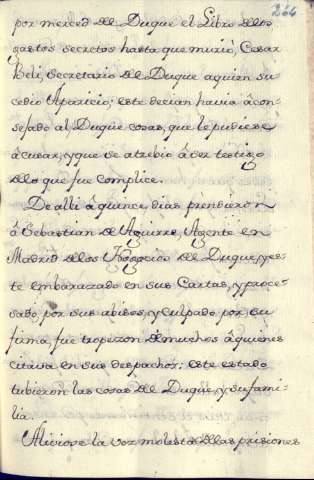 266
por merced del Duque el Libro delos
gastos secretos hasta que murió, Cesar
Beli, secretario del Duque aquien su
cedio Aparicio; este decian havia âcon-
sejado al Duque cosas, que le pudiere
âcusar, y que se atrebio â ser testigo
delo que fue complice.
De alli â quince dias prendieron
â Sebastian de Aguirre, Agente en
Madrid delos Negocios del Duque, y es-
te embarazado en sus Cartas, y proce-
sado, por sus abisos, y Culpado por su
firma, fue tropezon de muchos âquienes
citava en sus despachos: este estado
tubieron las cosas del Duque, y su fami-
lia.
Aliviose la voz molesta delas prisiones